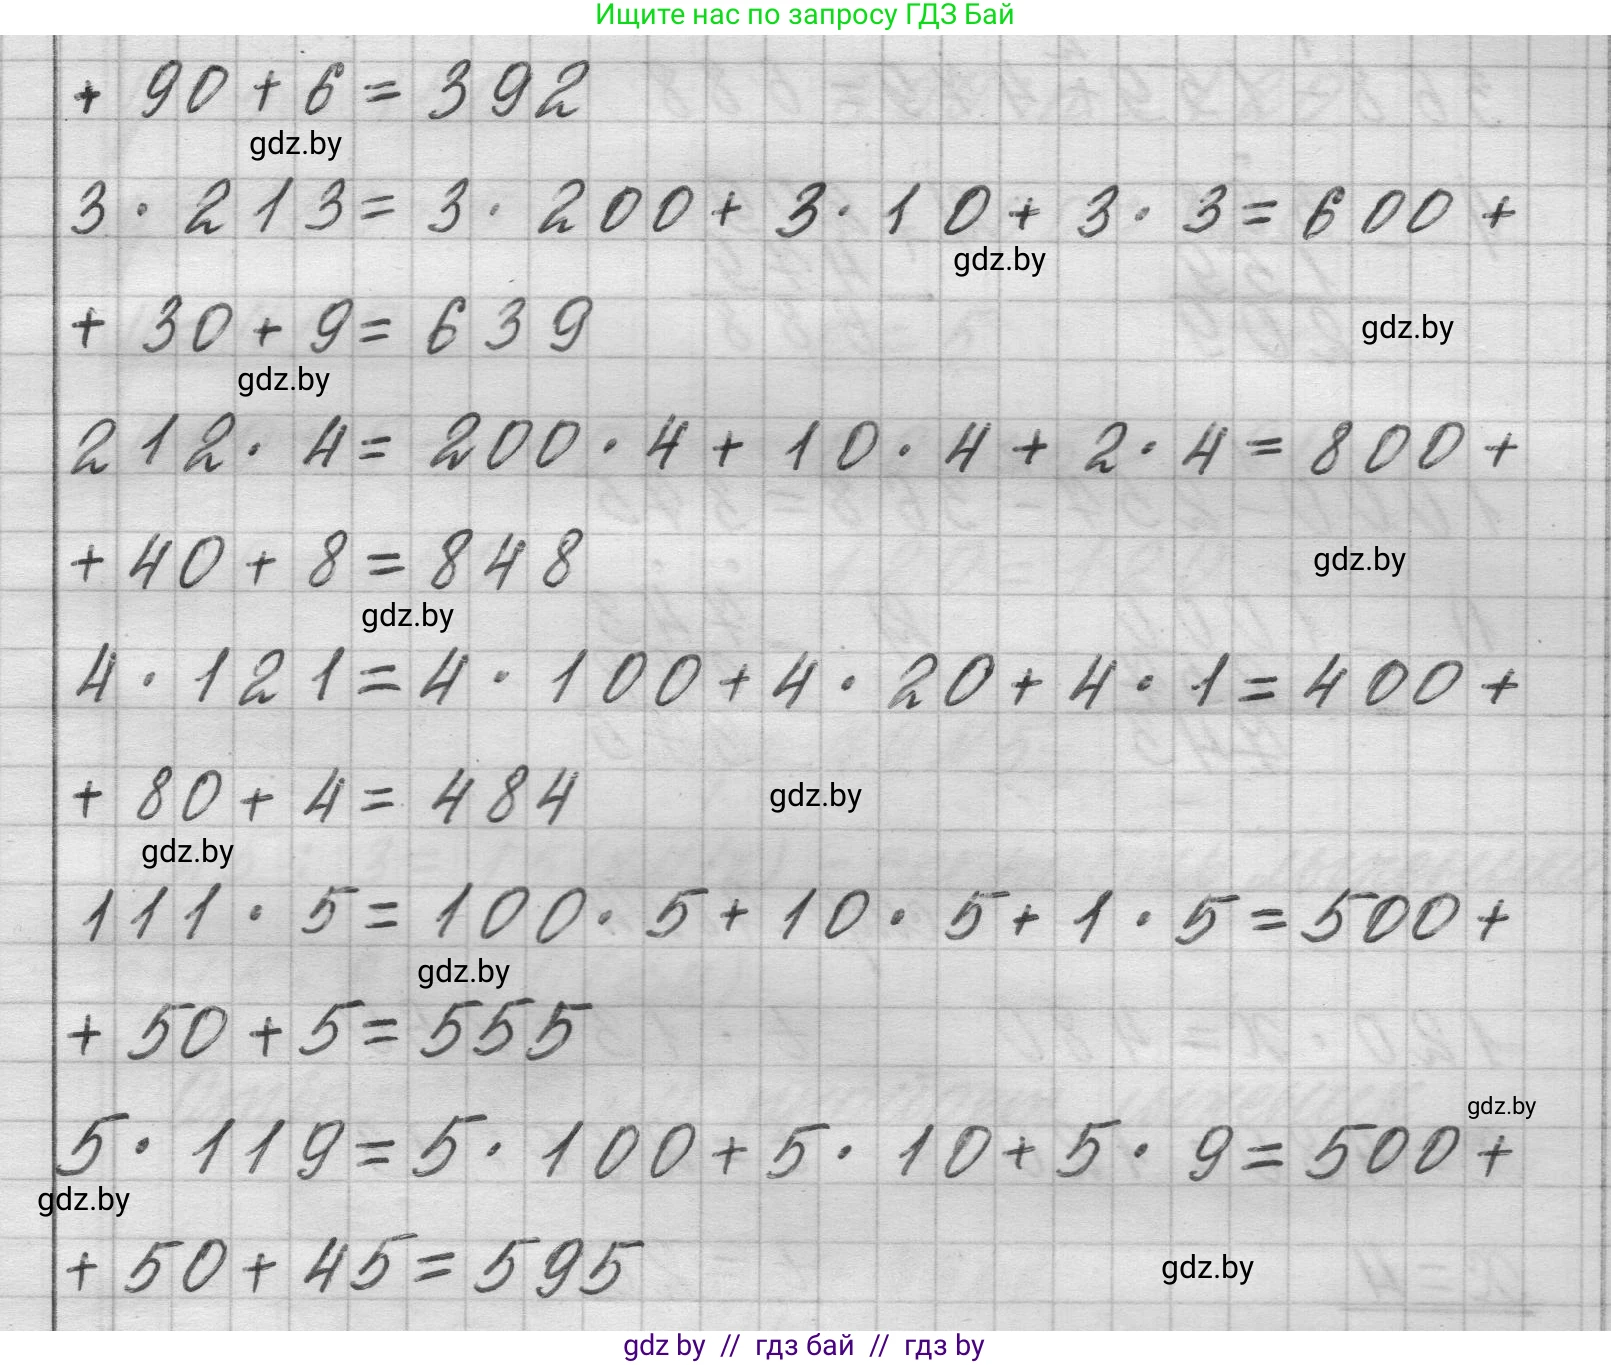 Ищите нас по запросу ГДЗ Бай
+ 90 + 6 = 392
gdz.by
3 · 213 = 3 · 200 + 3 · 10 + 3 · 3 = 600 +
gdz.by
+ 30 + 9 = 639
gdz.by
gdz.by
212 · 4 = 200 · 4 + 10 · 4 + 2 · 4 = 800 +
+ 40 + 8 = 848
gdz.by
gdz.by
4 · 121 = 4 · 100 + 4 · 20 + 4 · 1 = 400 +
+ 80 + 4 = 484
gdz.by
gdz.by
111 · 5 = 100 · 5 + 10 · 5 + 1 · 5 = 500 +
gdz.by
+ 50 + 5 = 555
gdz.by
5 · 119 = 5 · 100 + 5 · 10 + 5 · 9 = 500 +
gdz.by
+ 50 + 45 = 595
gdz.by
gdz by // гдз бай // гдз by